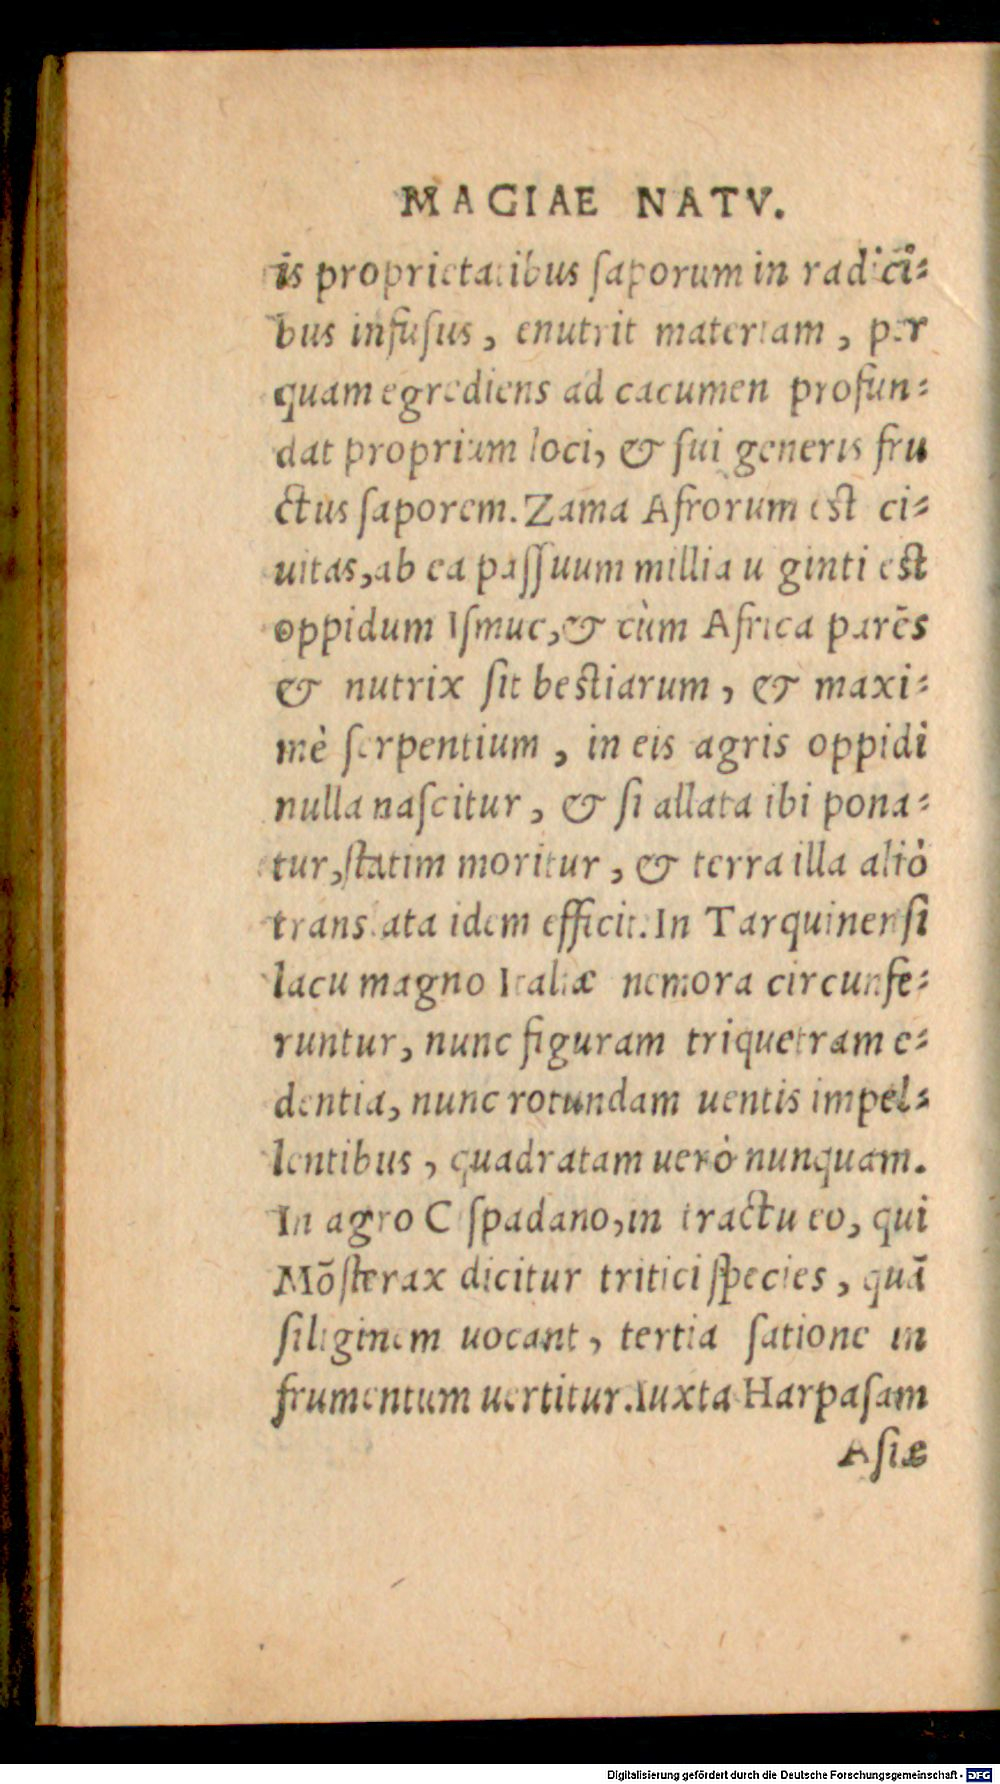 MAGIAE NATV.
is proprietatibus ſaporum in radici-
bus infuſus, enutrit materiam, per
quam egrediens ad cacumen profun-
dat proprium loci, & ſui generis fru
ctus ſaporem. Zama Afrorum est ci-
uitas, ab ea paſſuum millia uiginti est
oppidum Iſmuc, & cùm Africa parēs
& nutrix ſit bestiarum, & maxi-
mè ſerpentium, in eis agris oppidi
nulla naſcitur, & ſi allata ibi pona-
tur, ſtatim moritur, & terra illa aliò
translata idem efficit. In Tarquinenſi
lacu magno Italiæ nemora circunfe-
runtur, nunc figuram triquetram e-
dentia, nunc rotundam uentis impel-
lentibus, quadratam uerò nunquam.
In agro Ciſpadano, in tractu eo, qui
Mōſterax dicitur tritici ſpecies, quā
ſiliginem uocant, tertia ſatione in
frumentum uertitur. Iuxta Harpaſam
Aſiæ
Digitalisierung gefördert durch die Deutsche Forschungsgemeinschaft - DFG